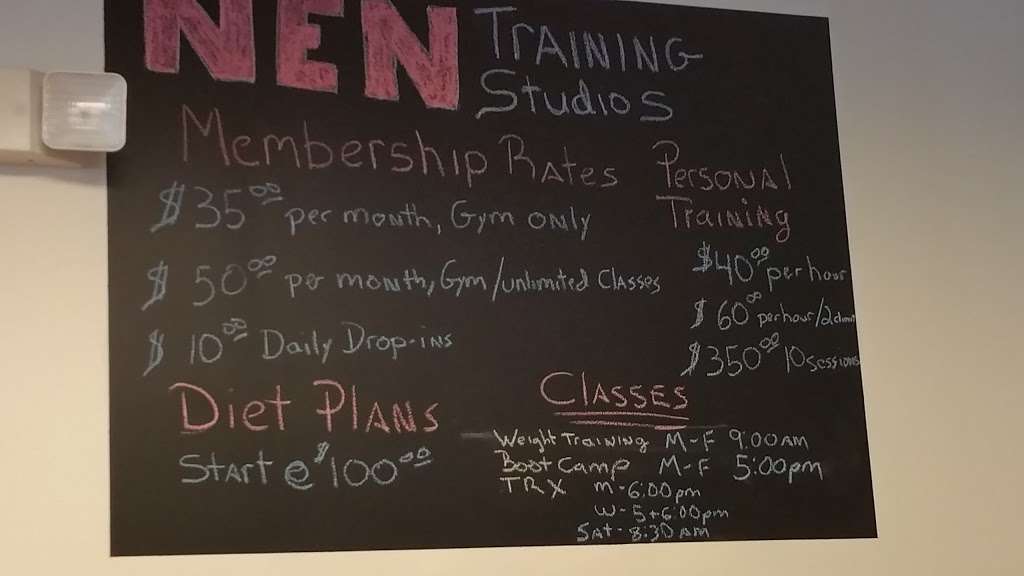 NEN TRAINING
Studios
Membership Rates
$35.00 per month, Gym only
$50.00 per month, Gym/unlimited Classes
$10.00 Daily Drop-ins
Personal
Training
$40.00 per hour
$60.00 per hour/2client
$350.00 10 sessions
Diet Plans
Start @ $100.00
Classes
Weight Training M-F 9:00AM
Boot Camp M-F 5:00pm
TRX M-6:00pm
W-5+6:00pm
SAT-8:30AM